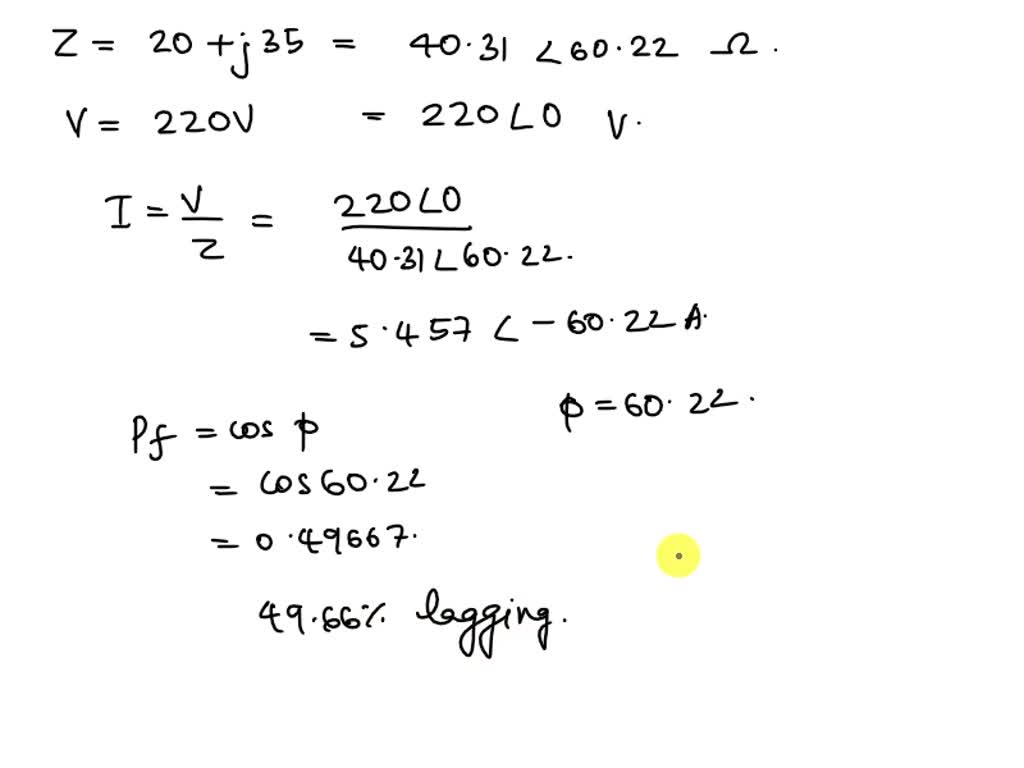 Z = 20 + j 35 = 40.31 ∠ 60.22 Ω.
V = 220V = 220 ∠ 0 V.
I = V/Z = 220 ∠ 0 / 40.31 ∠ 60.22.
= 5.457 ∠ - 60.22 A.
ϕ = 60.22.
Pf = cos ϕ
= cos 60.22
= 0.49667.
49.66% lagging.